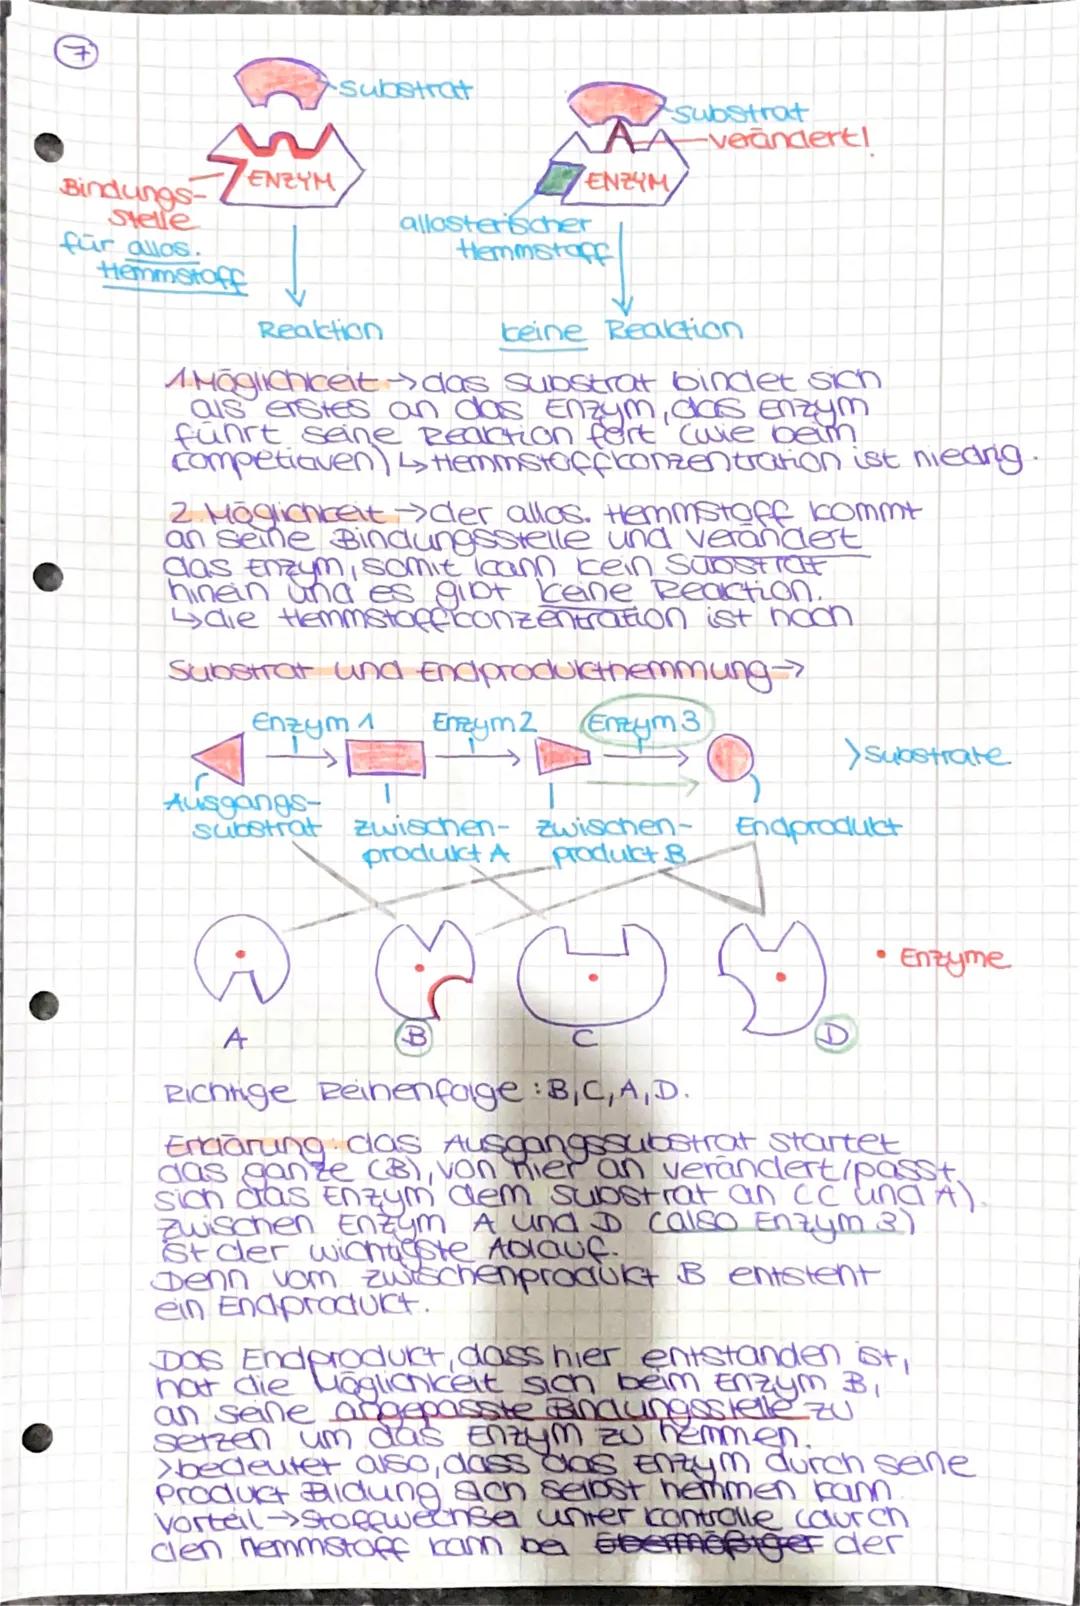 7
Substrat
Substrat
verändert!
ENZYM
ENZYM
Bindungs-
stelle
für allos.
Hemmstoff
allosterischer
Hemmstoff
Reaktion
keine Reaktion
1. Möglichkeit → das Substrat bindet sich
als erstes an das Enzym, das Enzym
führt seine Reaktion fort (wie beim
competitiven) ↳ Hemmstoffkonzentration ist niedrig.
2. Möglichkeit → der allos. Hemmstoff kommt
an seine Bindungsstelle und verändert
das Enzym, somit kann kein Substrat
hinein und es gibt keine Reaktion.
↳ die Hemmstoffkonzentration ist hoch
Substrat und Endprodukthemmung →
Enzym 1 Enzym 2 Enzym 3
> Substrate
Ausgangs-
substrat
zwischen-
produkt A
zwischen-
produkt B
Endprodukt
• Enzyme
A B C D
Richtige Reihenfolge : B, C, A, D.
Erklärung: das Ausgangssubstrat startet
das ganze (B), von hier an verändert/passt
sich das Enzym dem Substrat an (C und A).
Zwischen Enzym A und D (also Enzym 3)
ist der wichtigste Ablauf.
Denn vom zwischenprodukt B entsteht
ein Endprodukt.
Das Endprodukt, dass hier entstanden ist,
hat die Möglichkeit sich beim Enzym B,
an seine angepasste Bindungsstelle zu
setzen um das Enzym zu hemmen.
> bedeutet also, dass das Enzym durch seine
Produkt Bildung sich selbst hemmen kann.
Vorteil → Stoffwechsel unter kontrolle (durch
den Hemmstoff kann bei der